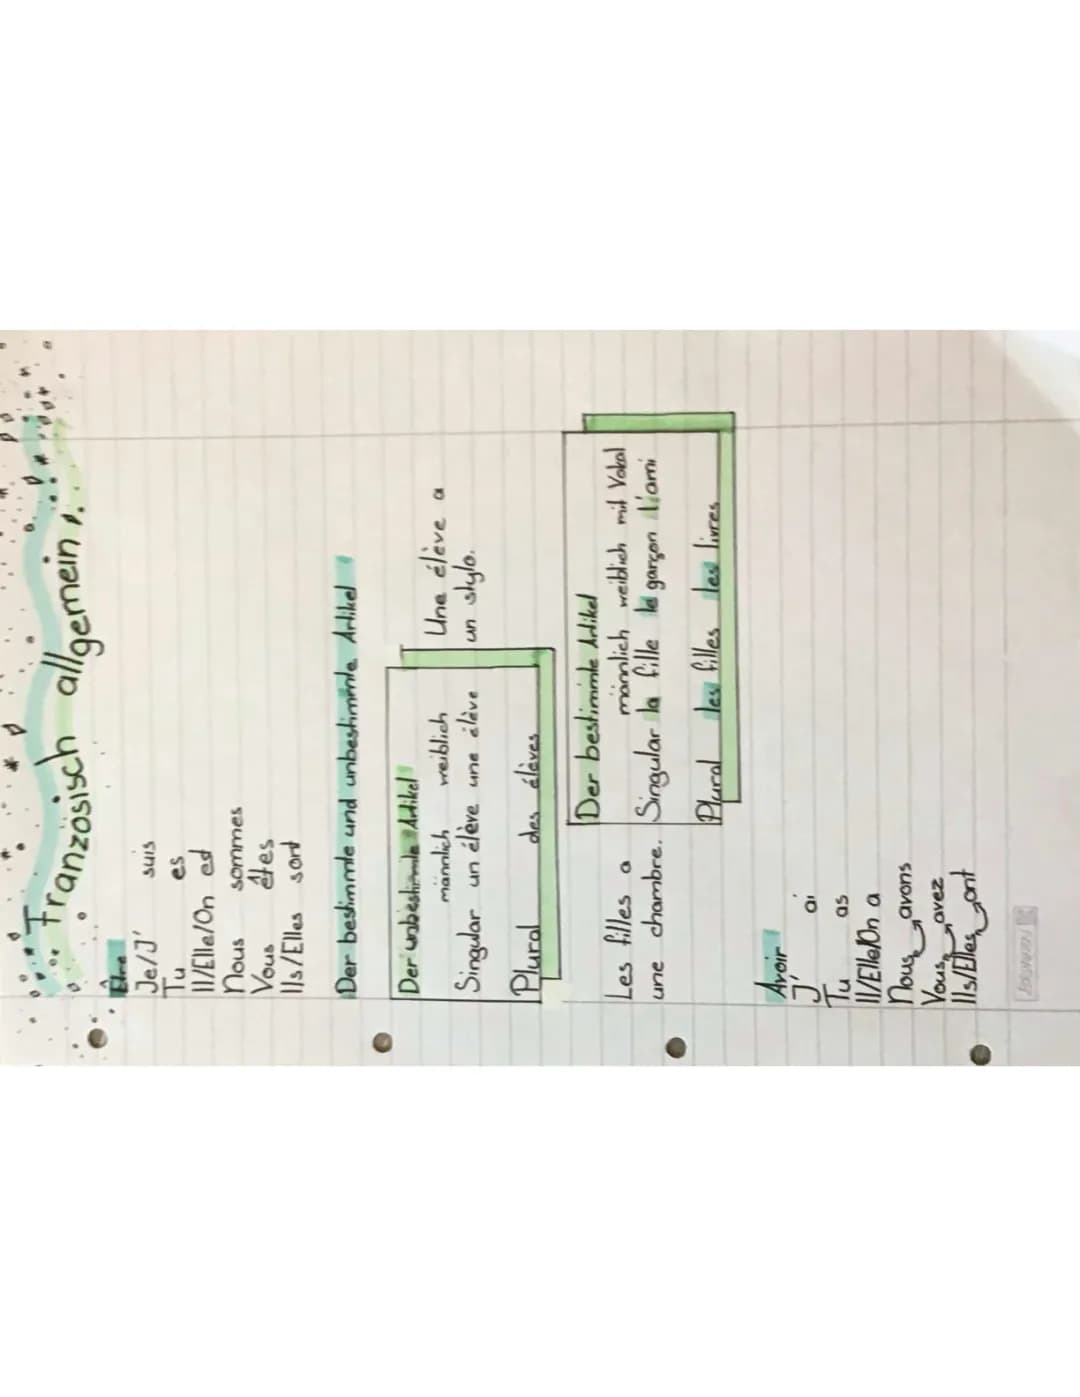 Französisch allgemein
Être
Je/J' suis
Tu es
Il/Elle/On est
Nous sommes
Vous êtes
Ils/Elles sont
Der bestimmte und unbestimmte Artikel
Der unbestimmte Artikel
männlich weiblich
Singular un élève une élève
Plural des élèves
Une élève a
un stylo.
Les filles a
une chambre.
Der bestimmte Artikel
männlich weiblich mit Vokal
Singular la fille le garçon l'ami
Plural les filles les livres
Avoir
J' ai
Tu as
Il/Elle/On a
Nous avons
Vous avez
Ils/Elles ont